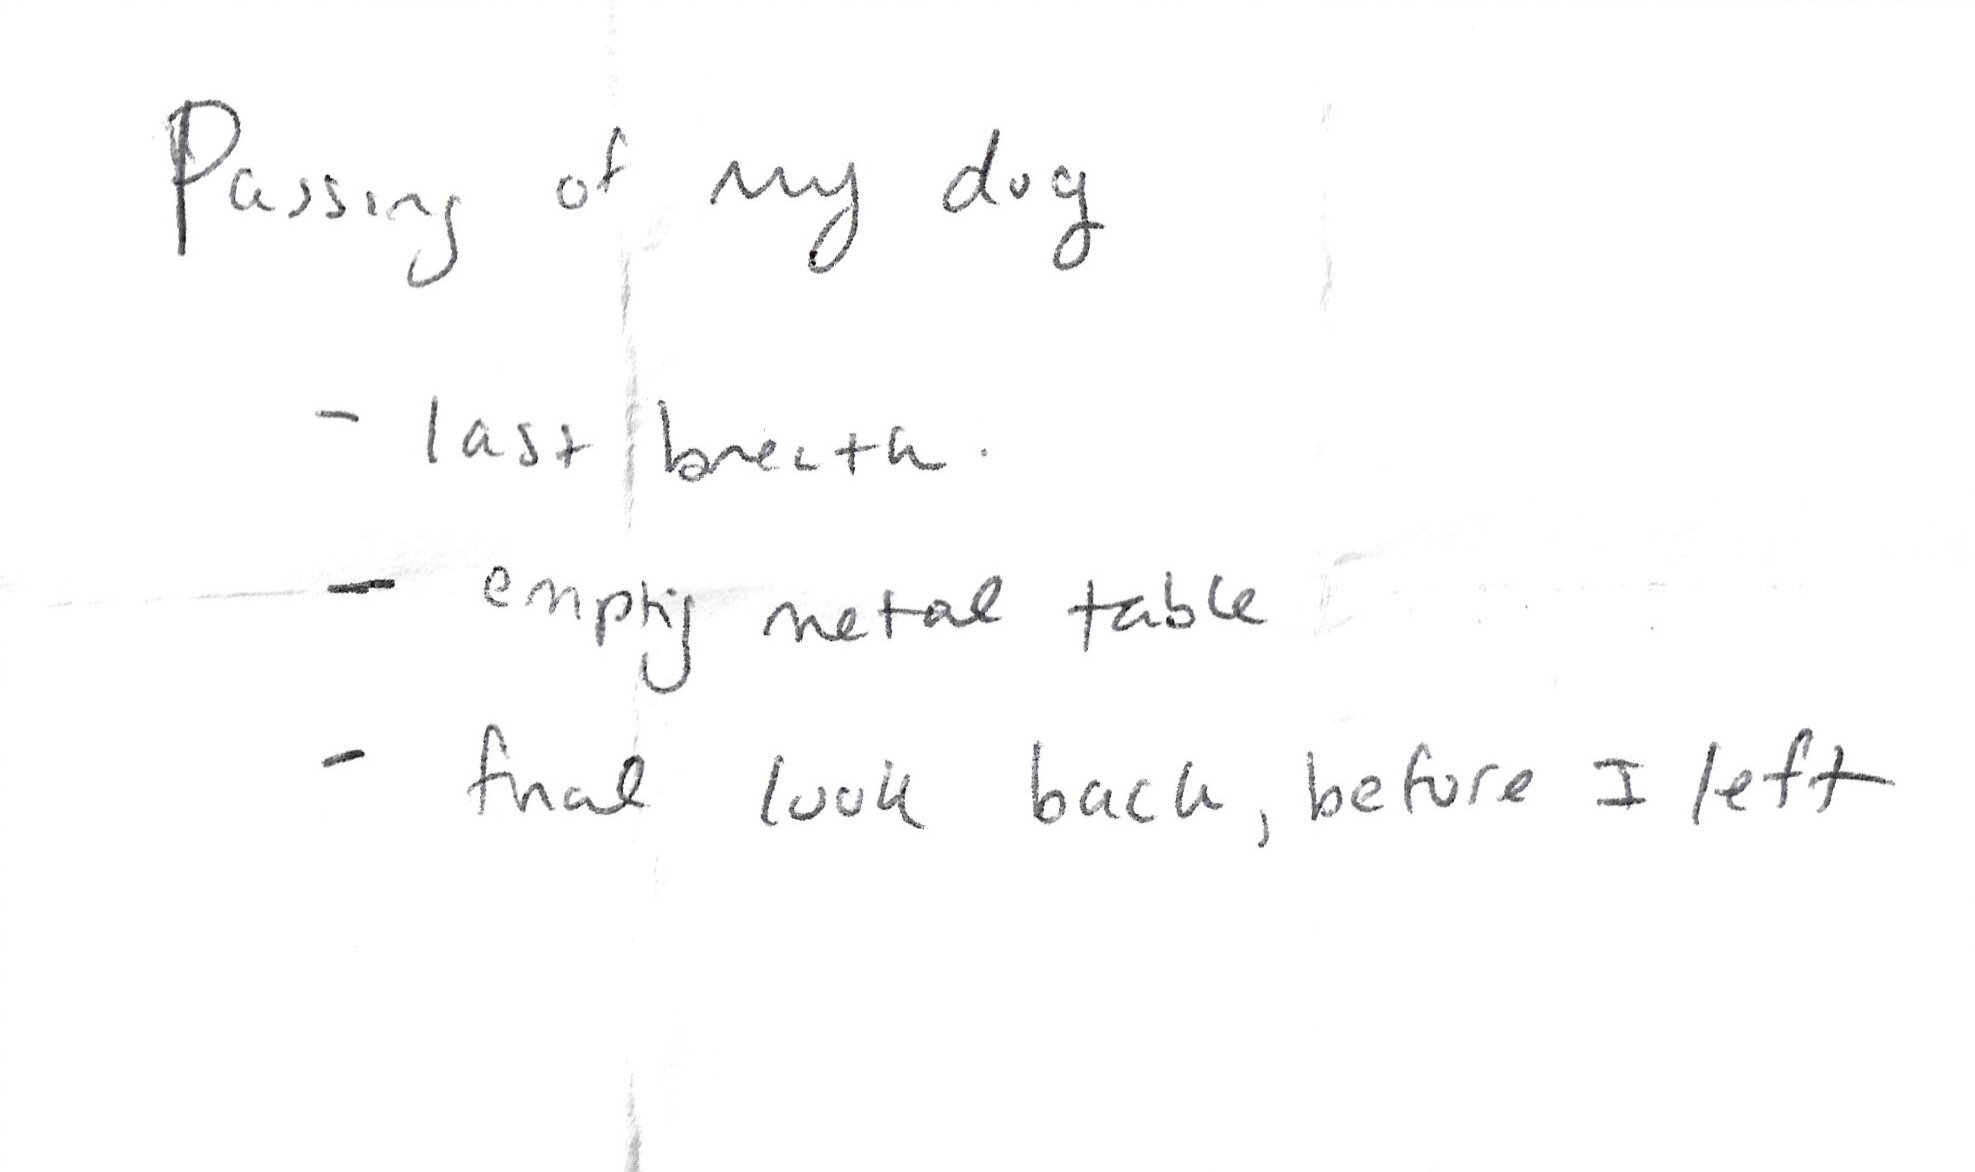 Passing of my dog
- last breath.
- empty metal table
- final look back, before I left